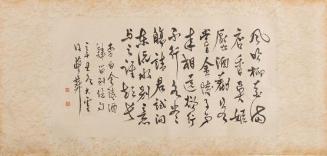 風吹柳花滿
店香吳姬
壓酒勸客
嘗金陵子弟
來相送欲行
不行各盡
觴請君試問
東流水別意
與之誰短長
李白金陵酒
肆留別